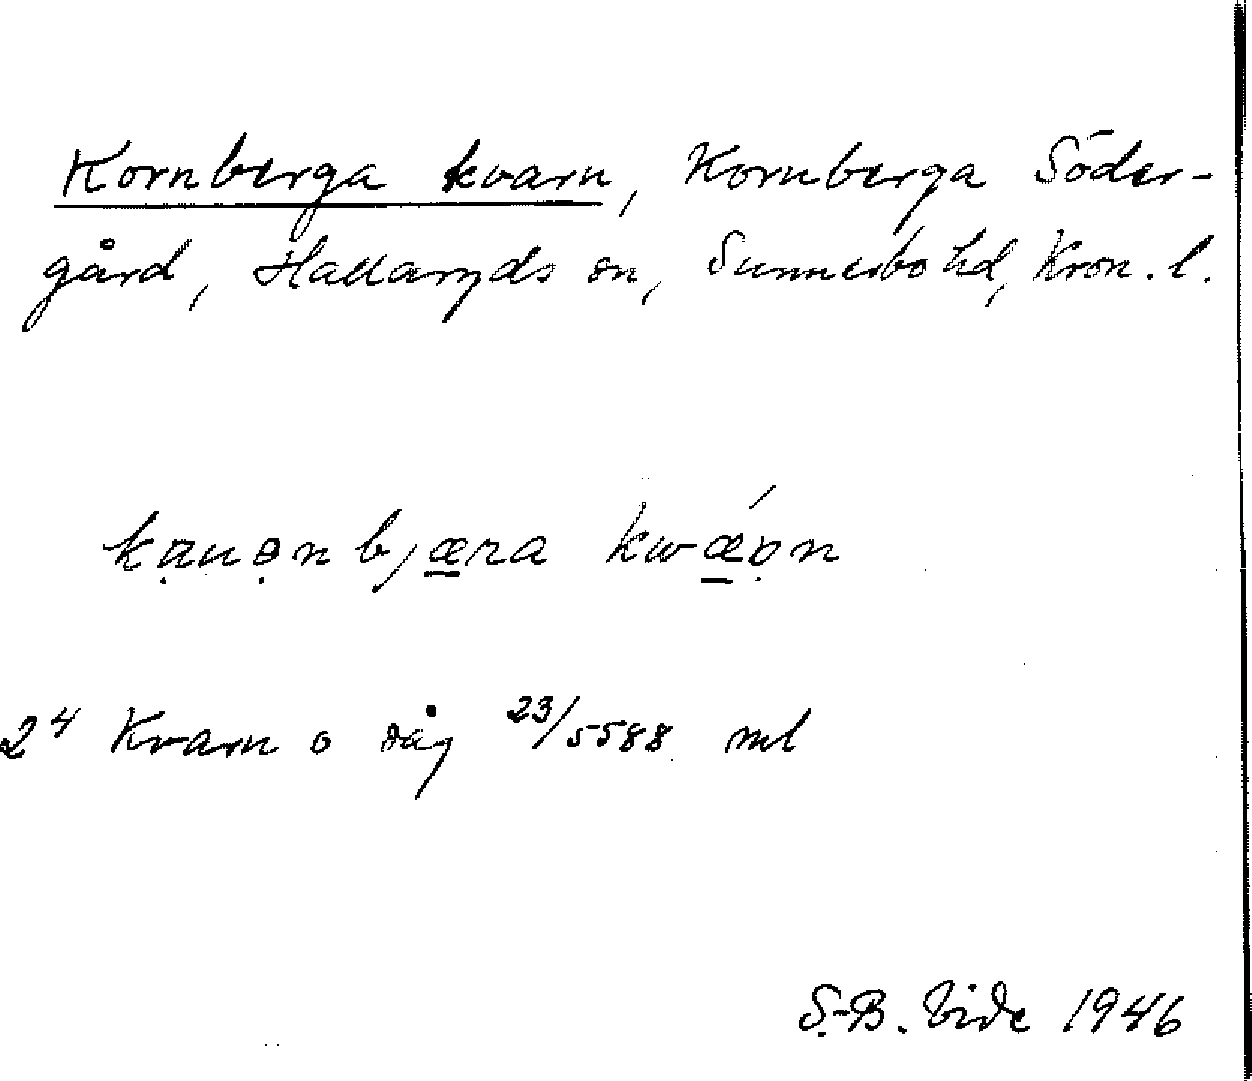 Kornberga kvarn, Kornberga Söder-
gård, Hallaryds sn, Sunnerbo hd, Kron. l.
kạuənbjæra kwǽən
2⁴ Kvarn o såg 23/5588 ml
S.-B. Vide 1946